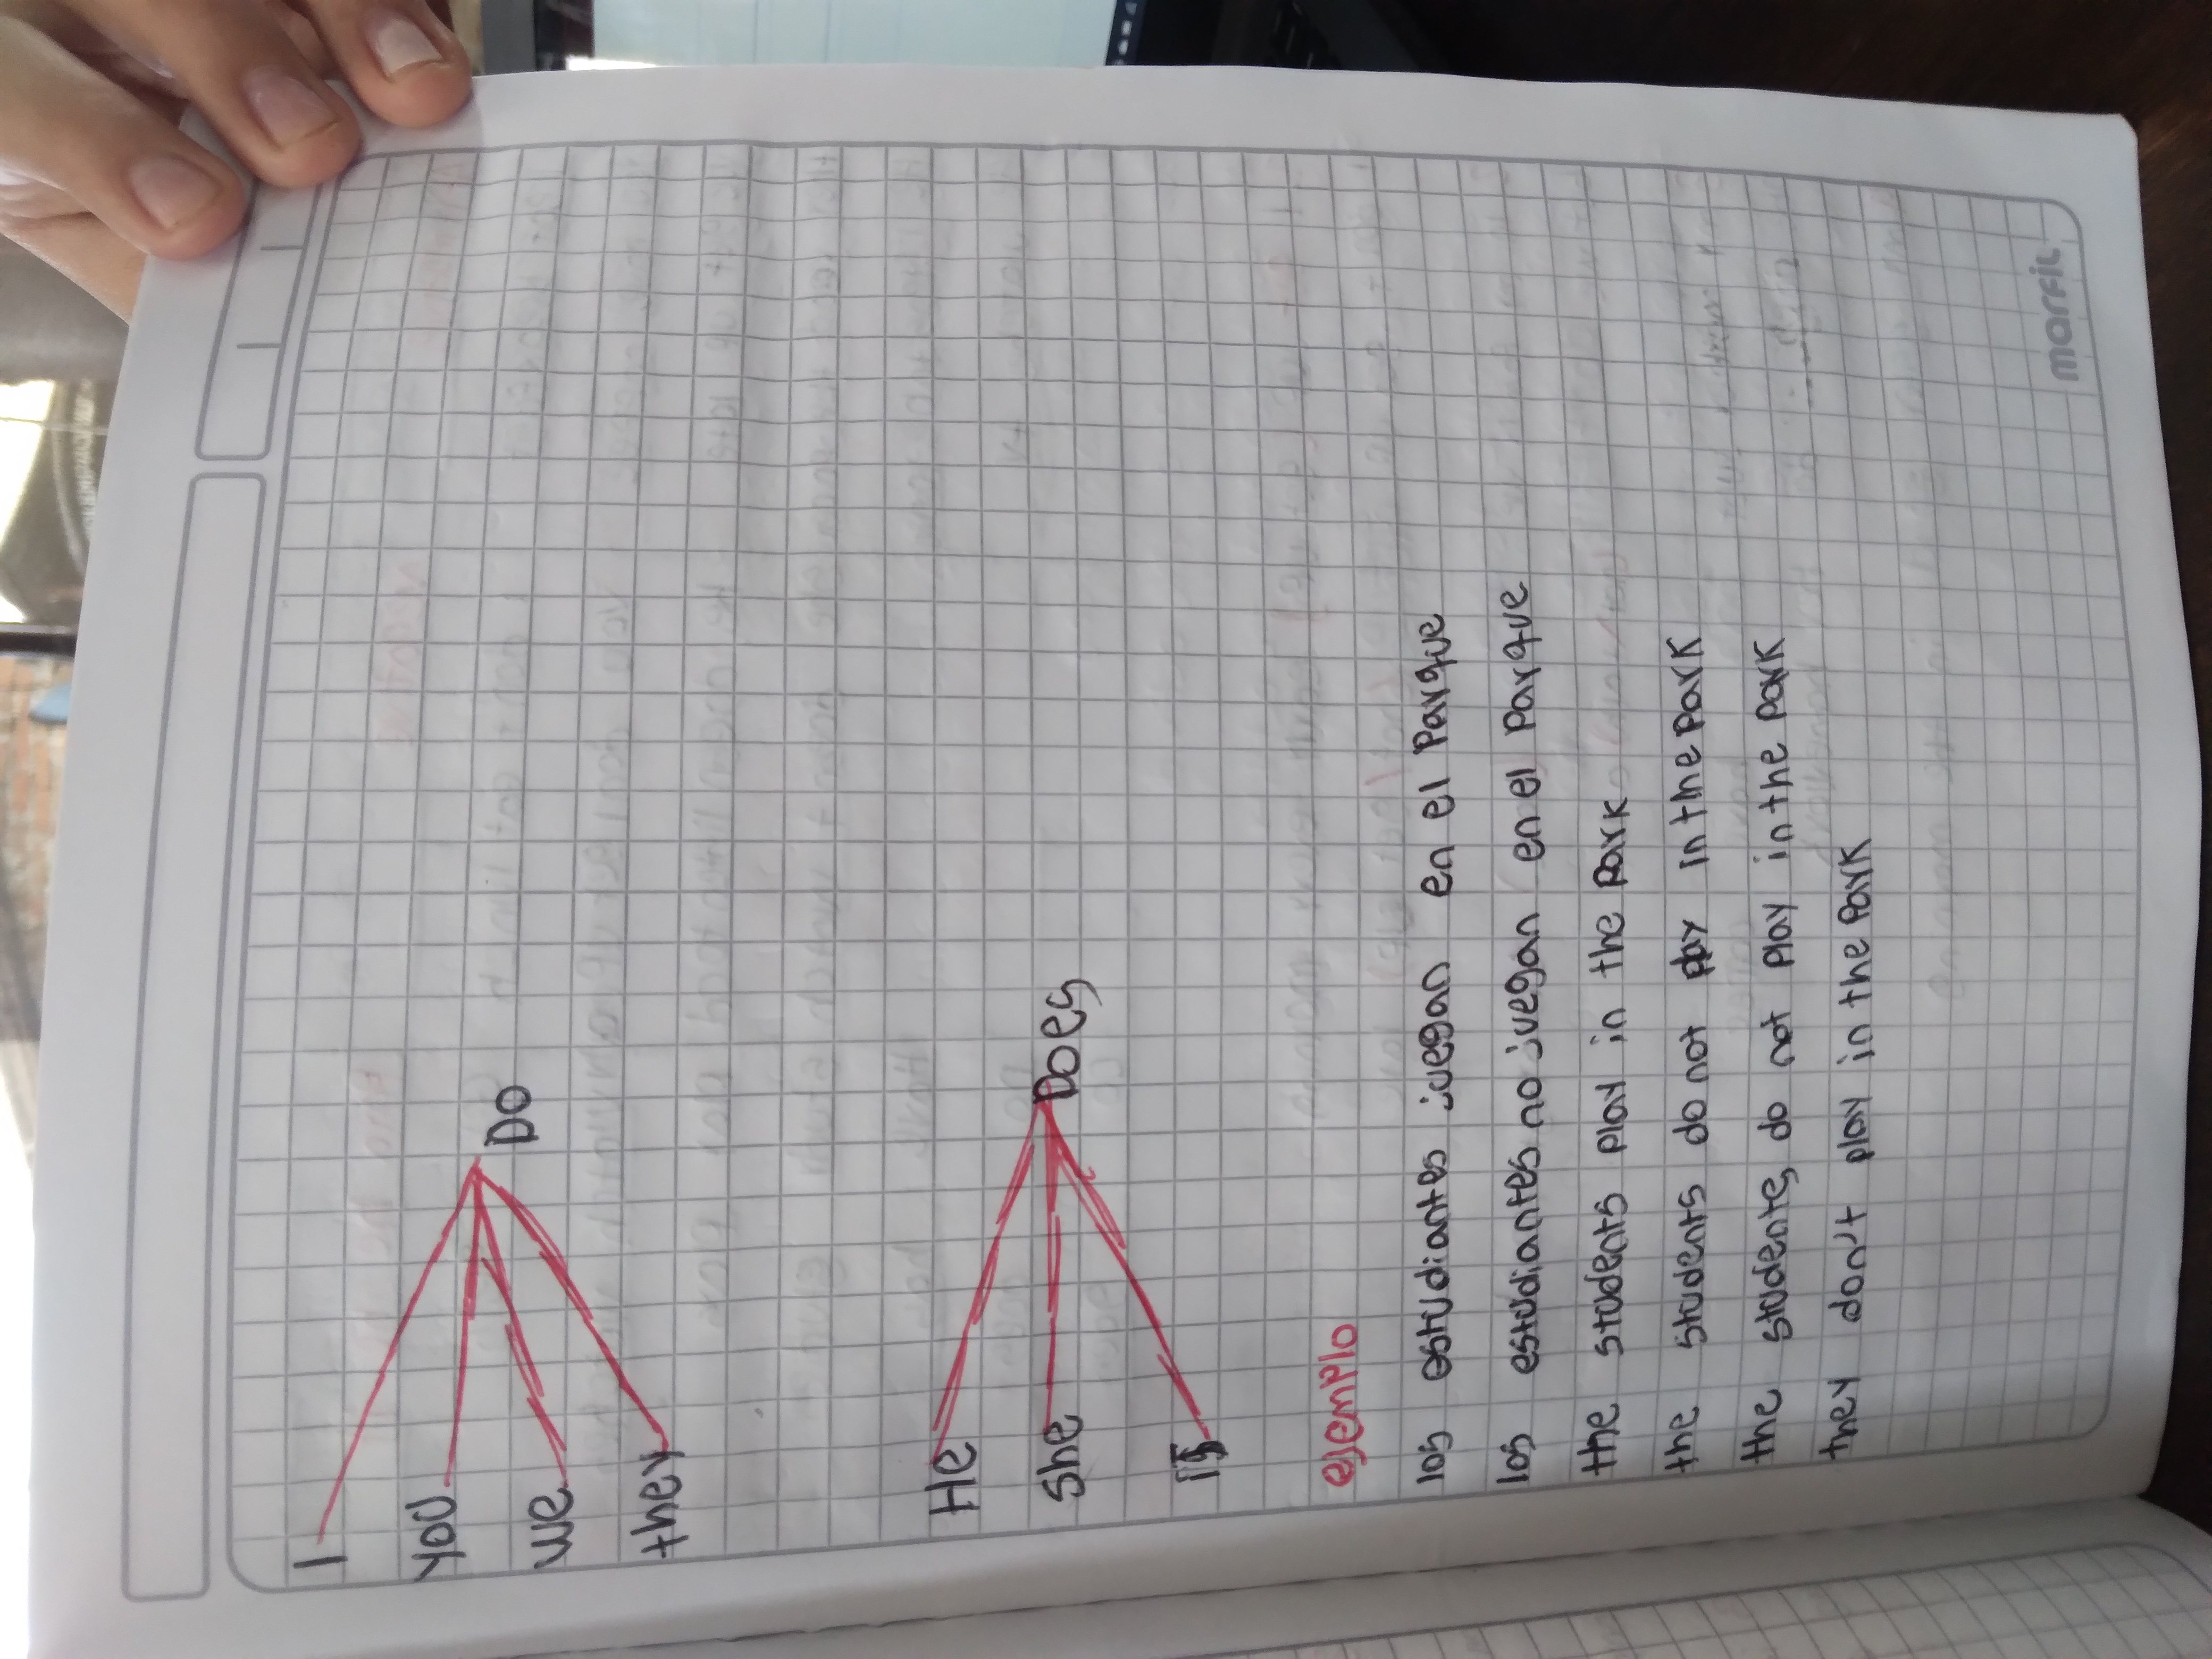 I
you
we
they
Do
He
she
it
Does
ejemplo
los estudiantes juegan en el Parque
los estudiantes no juegan en el Parque
the students play in the park
the students do not play in the park
the students do not play in the park
they don't play in the park
marfil